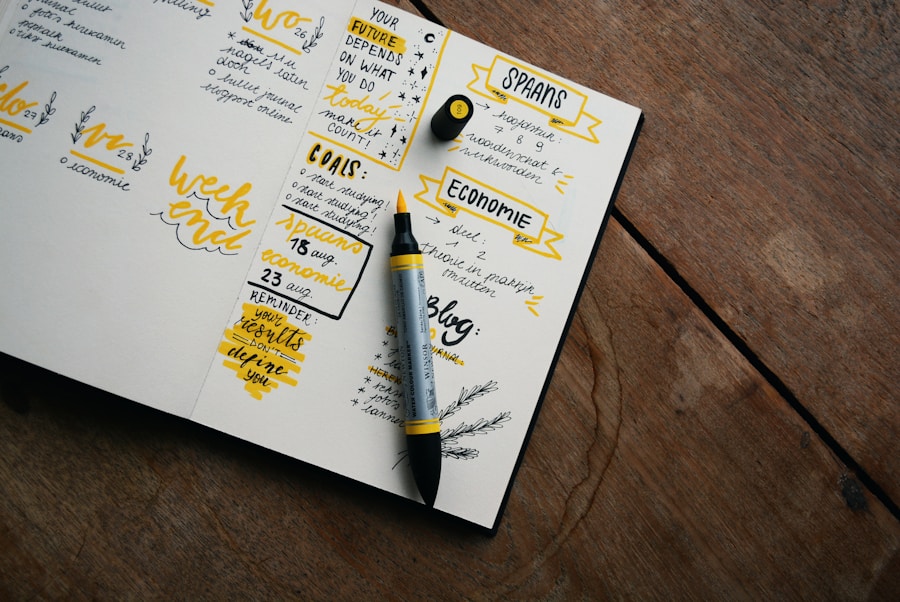 o foto's herwerken
o tekst herwerken
wo 26
*
nagels laten
doen
o bullet journal
blogpost online
do 27
vr 28
o economie
Week
end
YOUR
FUTURE
DEPENDS
ON WHAT
YOU DO
today
make it
COUNT!
GOALS:
o start studying!
o start studying!
o start studying!
spaans
18 aug.
economie
23 aug.
REMINDER:
your
results
DON'T
define
you
SPAANS
→ hoofdstuk:
7 8 9
woordenschat &
werkwoorden
ECONOMIE
→ deel:
1 2
theorie in praktijk
omzetten
Blog:
WINSOR
WATER COLOUR MARKER